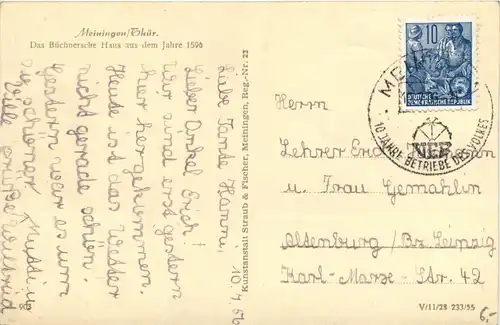 Meiningen/Thür.
Das Büchnersche Haus aus dem Jahre 1596
10.4.56
Liebe Tante Hanni,
Lieber Onkel Erich!
Wir sind erst gestern
hier hergekommen.
Heute ist das Wetter
nicht gerade schön.
Gestern war es um
so schöner.
Viele Grüße
903
Kunstanstalt Straub & Fischer, Meiningen, Reg.-Nr. 23
10
DEUTSCHE
DEMOKRATISCHE REPUBLIK
10 JAHRE BETRIEBE DES VOLKES
VEB
Herrn
Lehrer Erich
u. Frau Gemahlin
Altenburg/Bz. Leipzig
Karl-Marx-Str. 42
V/11/28 233/55
6,-